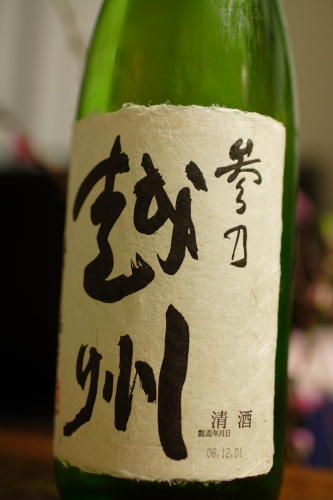 参乃
越州
清酒
製造年月日
08.12.01